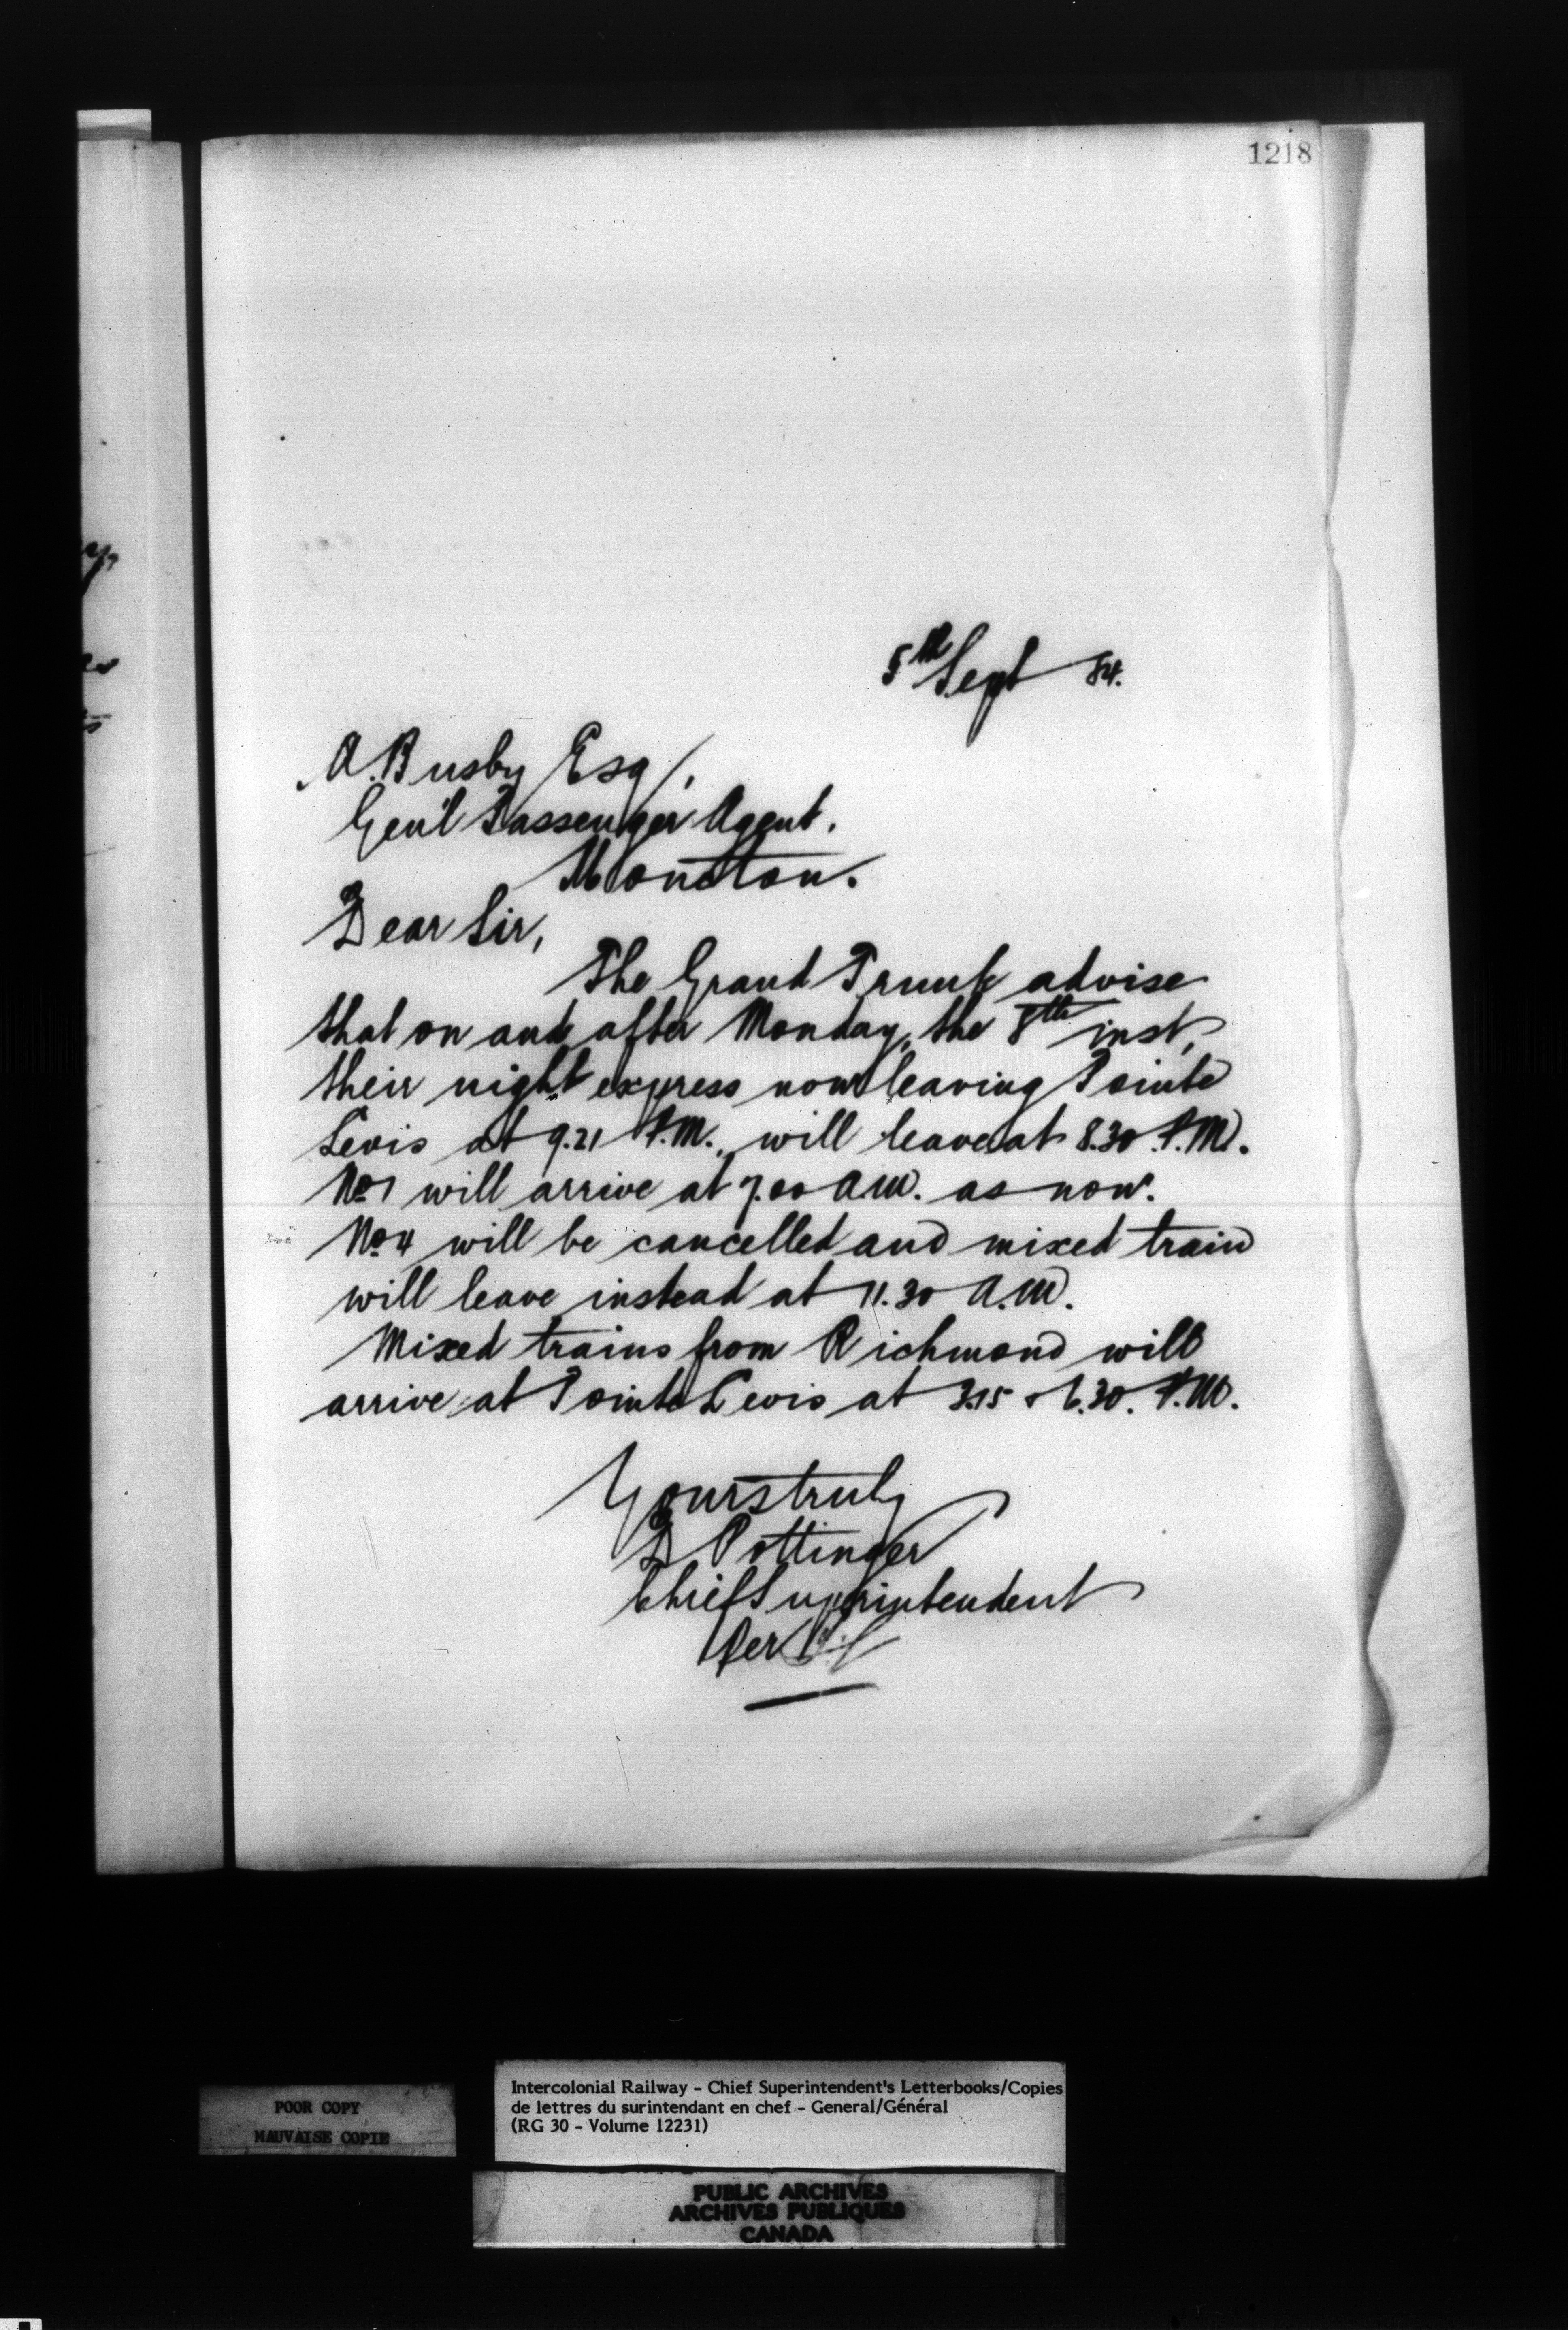 1218
5th Sept 84.
A. Busby Esq/.
Gen'l Passenger Agent.
Moncton.
Dear Sir,
The Grand Trunk advise
that on and after Monday, the 8th inst,
their night express now leaving Pointe
Levis at 9.21 P.M., will leave at 8.30 P.M.
No 1 will arrive at 7.00 A.M. as now.
No 4 will be cancelled and mixed train
will leave instead at 11.30 A.M.
Mixed trains from Richmond will
arrive at Pointe Levis at 3.15 & 6.30. P.M.
Yours truly
D Pottinger
Chief Superintendent
Per
POOR COPY
MAUVAISE COPIE
Intercolonial Railway - Chief Superintendent's Letterbooks/Copies
de lettres du surintendant en chef - General/Général
(RG 30 - Volume 12231)
PUBLIC ARCHIVES
ARCHIVES PUBLIQUES
CANADA